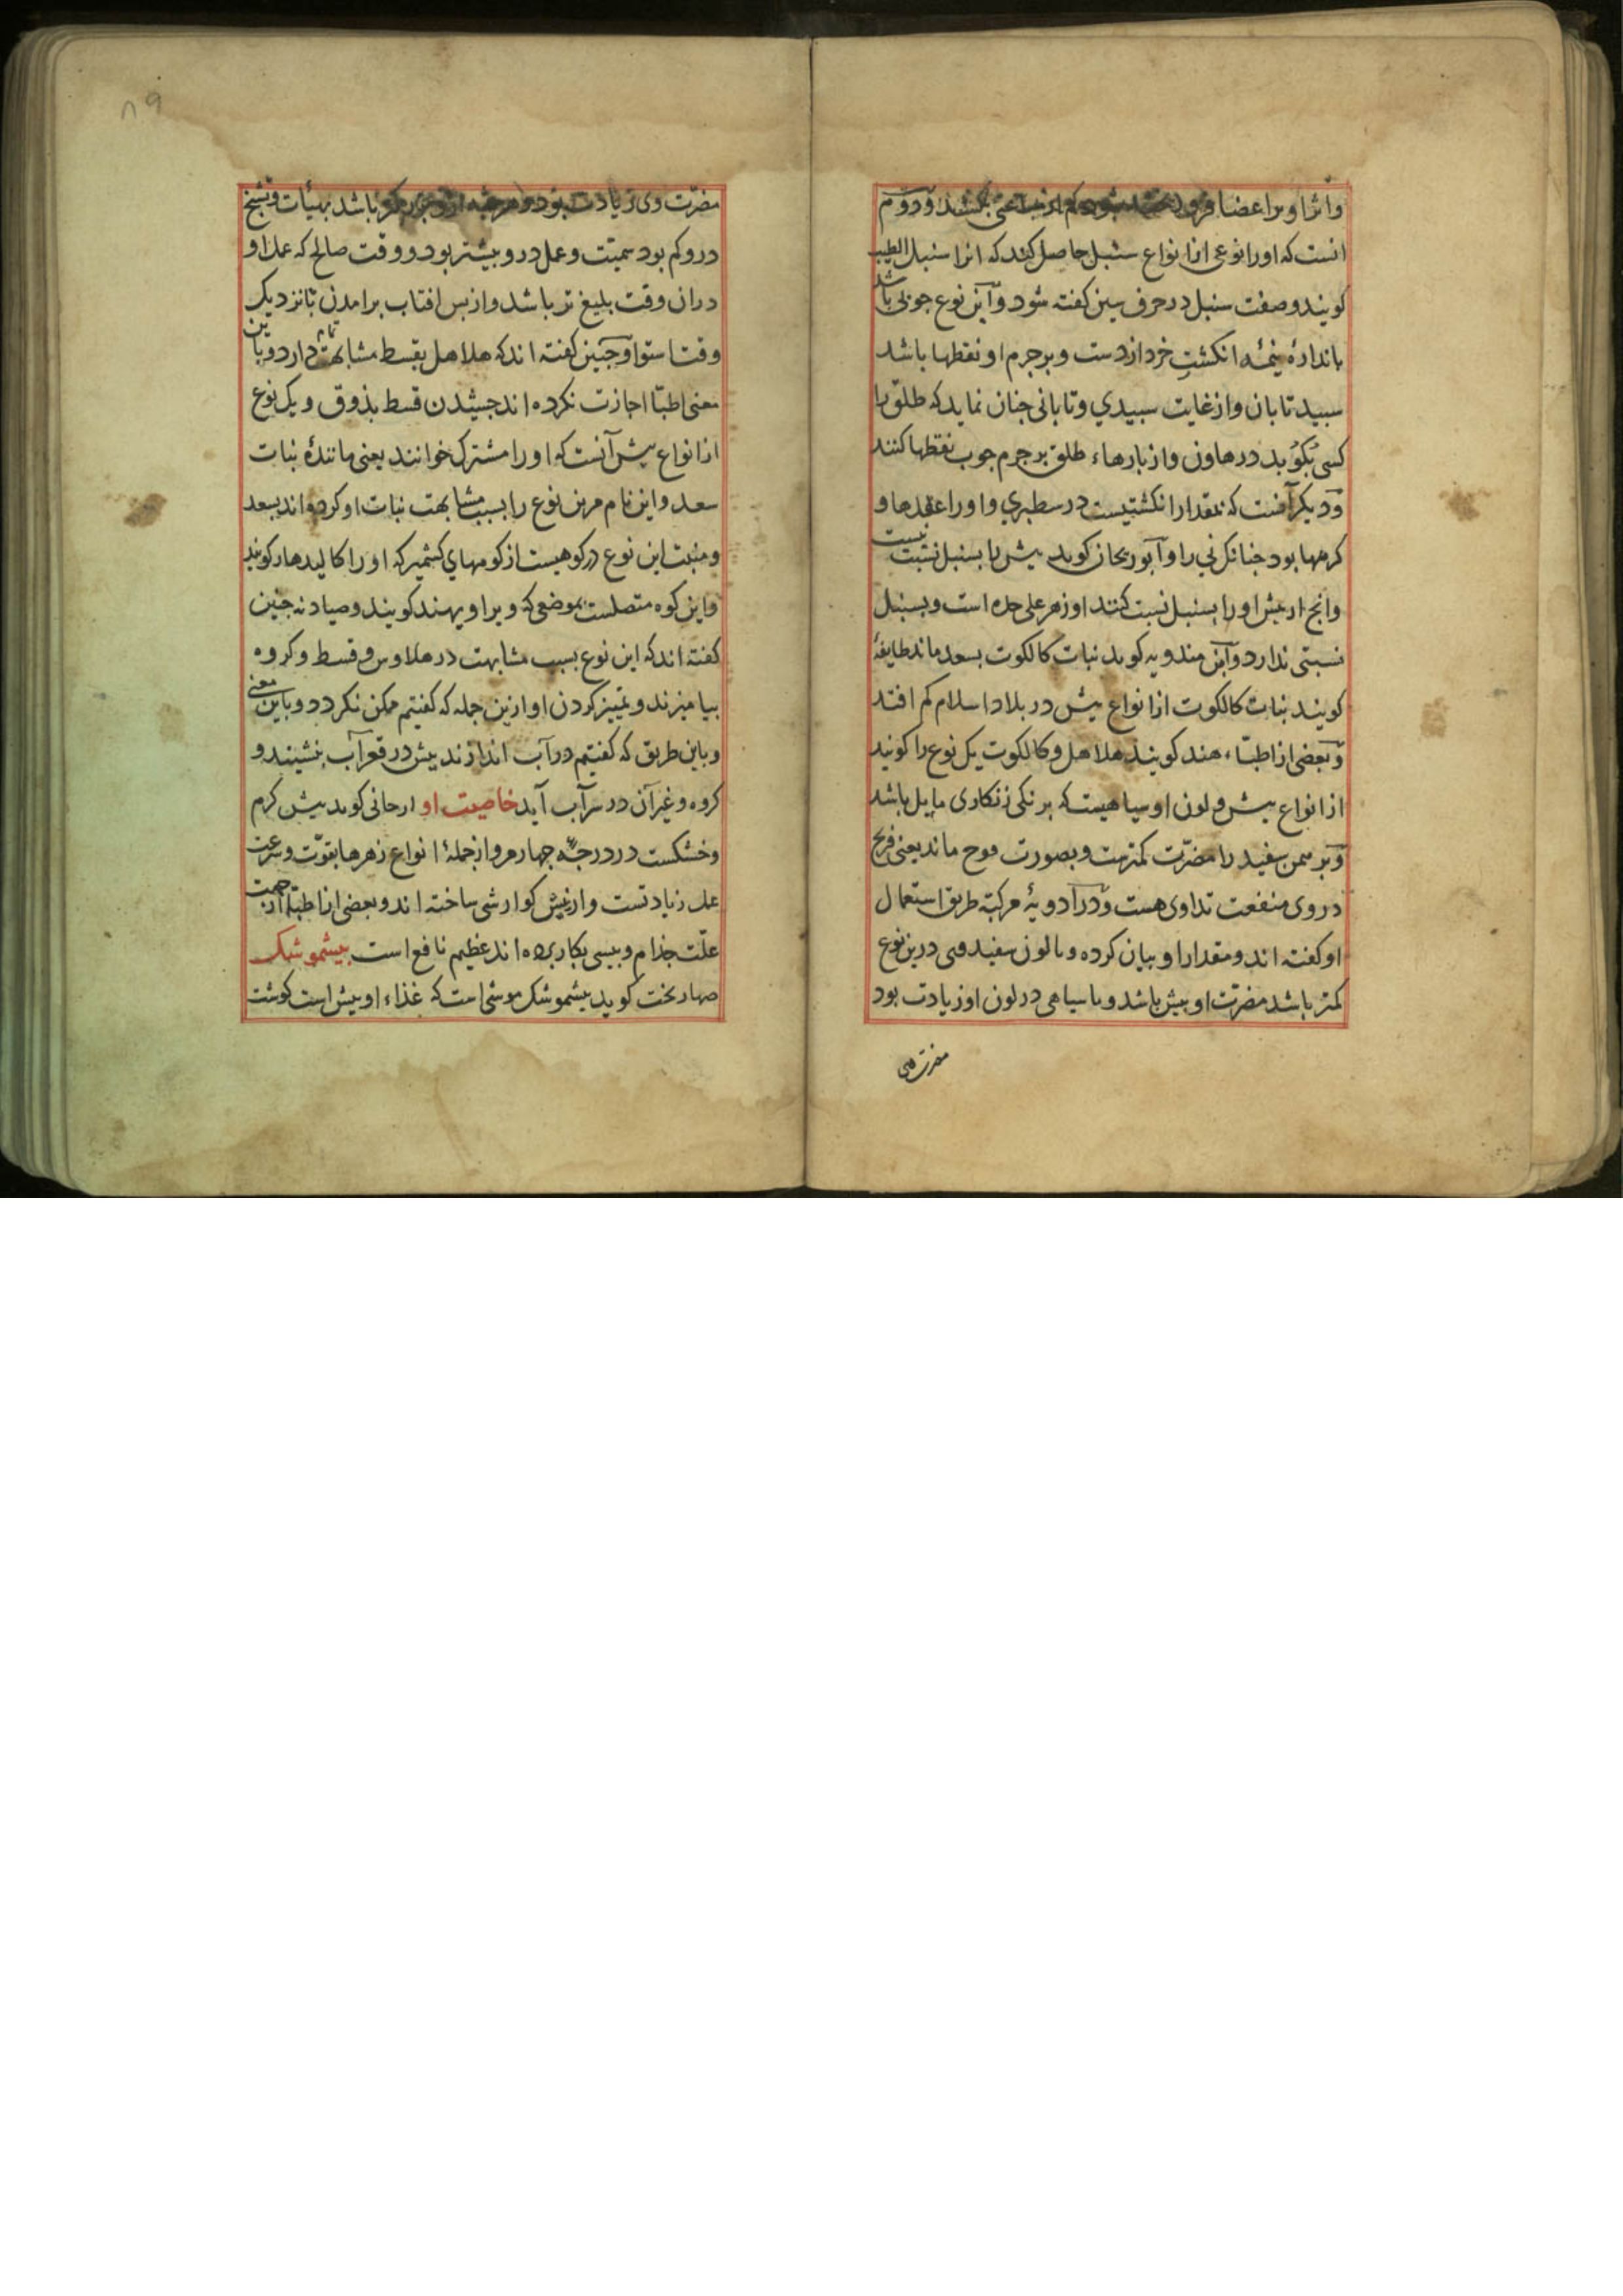 واثر او بر اعضا فرو بکشد و دوم
انست که اورا نوعی از انواع سنبل حاصل کنند که انرا سنبل الطیب
کویند وصفت سنبل در حرف سین کفته شود و این نوع چوبی باشد
باندازهٔ نیمهٔ انکشتِ خرد از دست و بر جرم او نقطها باشد
سبید تابان و از غایت سبیدي و تابانی جنان نماید که طلق را
کسی بکوُبد در هاون و از بارهاء طلق بر جرم جوب نقطها کنند
و دیکر آنست که بمقدار انکشتیست در سطبري و اورا عقدها و
کرهها بود جنانک نی را و ابو ریحان کوید بیش را بسنبل نسبت نیست
وانج از بیش اورا بسنبل نسبت کنند او زهر علی حده است و بسنبل
نسبتی ندارد و ابن مندویه کوید نبات کالکوت بسعد ماند طایفهٔ
کویند نبات کالکوت از انواع بیش در بلاد اسلام کم افتد
و بعضی از اطباء هند کویند هلاهل و کالکوت یک نوع را کویند
از انواع بیش و لون او سیاهیست که برنکی زنکاری مایل باشد
و بر سمن سفید را مضرّت کمترست و بصورت موح ماند یعنی فرنج
در وی منفعت تداوی هست و در ادویهٔ مرکبّه طریق استعمال
او کفته اند و مقدار او بیان کرده و با لون سفید وی درین نوع
کمتر باشد مضرّت او بیش باشد و با سیاهی در لون او زیادت بود
مضرت وی
۸۹
مضرّت وی زیادت بود و هرچه باشد بهیأت و تشنج
درو کم بود سمیّت و عمل درو بیشتر بود و وقت صالح که عمل او
دران وقت بلیغ تر باشد و از بس افتاب برامدن تا نزدیک
وقت استوا و جنین کفته اند که هلاهل بقسط مشابهت تمام دارد و باین
معنی اطبّا اجازت نکرده اند جشیدن قسط بذوق و یک نوع
از انواع بیش آنست که اورا مشترک خوانند یعنی مانندهٔ نبات
سعد و این نام مرین نوع را بسبب مشابهت نبات او کرده اند بسعد
و منبت این نوع در کوهیست از کوههاي کشمیر که اورا کالیدهار کویند
و این کوه متصلست بموضعی که ویرا ویهند کویند و صیادنه جنین
کفته اند که این نوع بسبب مشابهت در هلاوس و قسط و کروه
بیامیزند و تمییز کردن او ازین جمله که کفتیم ممکن نکردد و باین معنی
و باین طریق که کفتیم در آب اندازند بیش در قعر آب بنشیند و
کروه و غیر آن در سر آب آید خاصیت او ارجانی کوید بیش کرم
و خشکست در درجهٔ جهارم و از جملهٔ انواع زهرها بقوّت و سرعت
عمل زیادتست و از بیش کوارشی ساخته اند و بعضی از اطبّا از جهت
علّت جذام و بیسی بکار برده اند عظیم نافع است بیشموشک
صهاربخت کوید بیشموشک موشی است که غذاء او بیش است کوشت